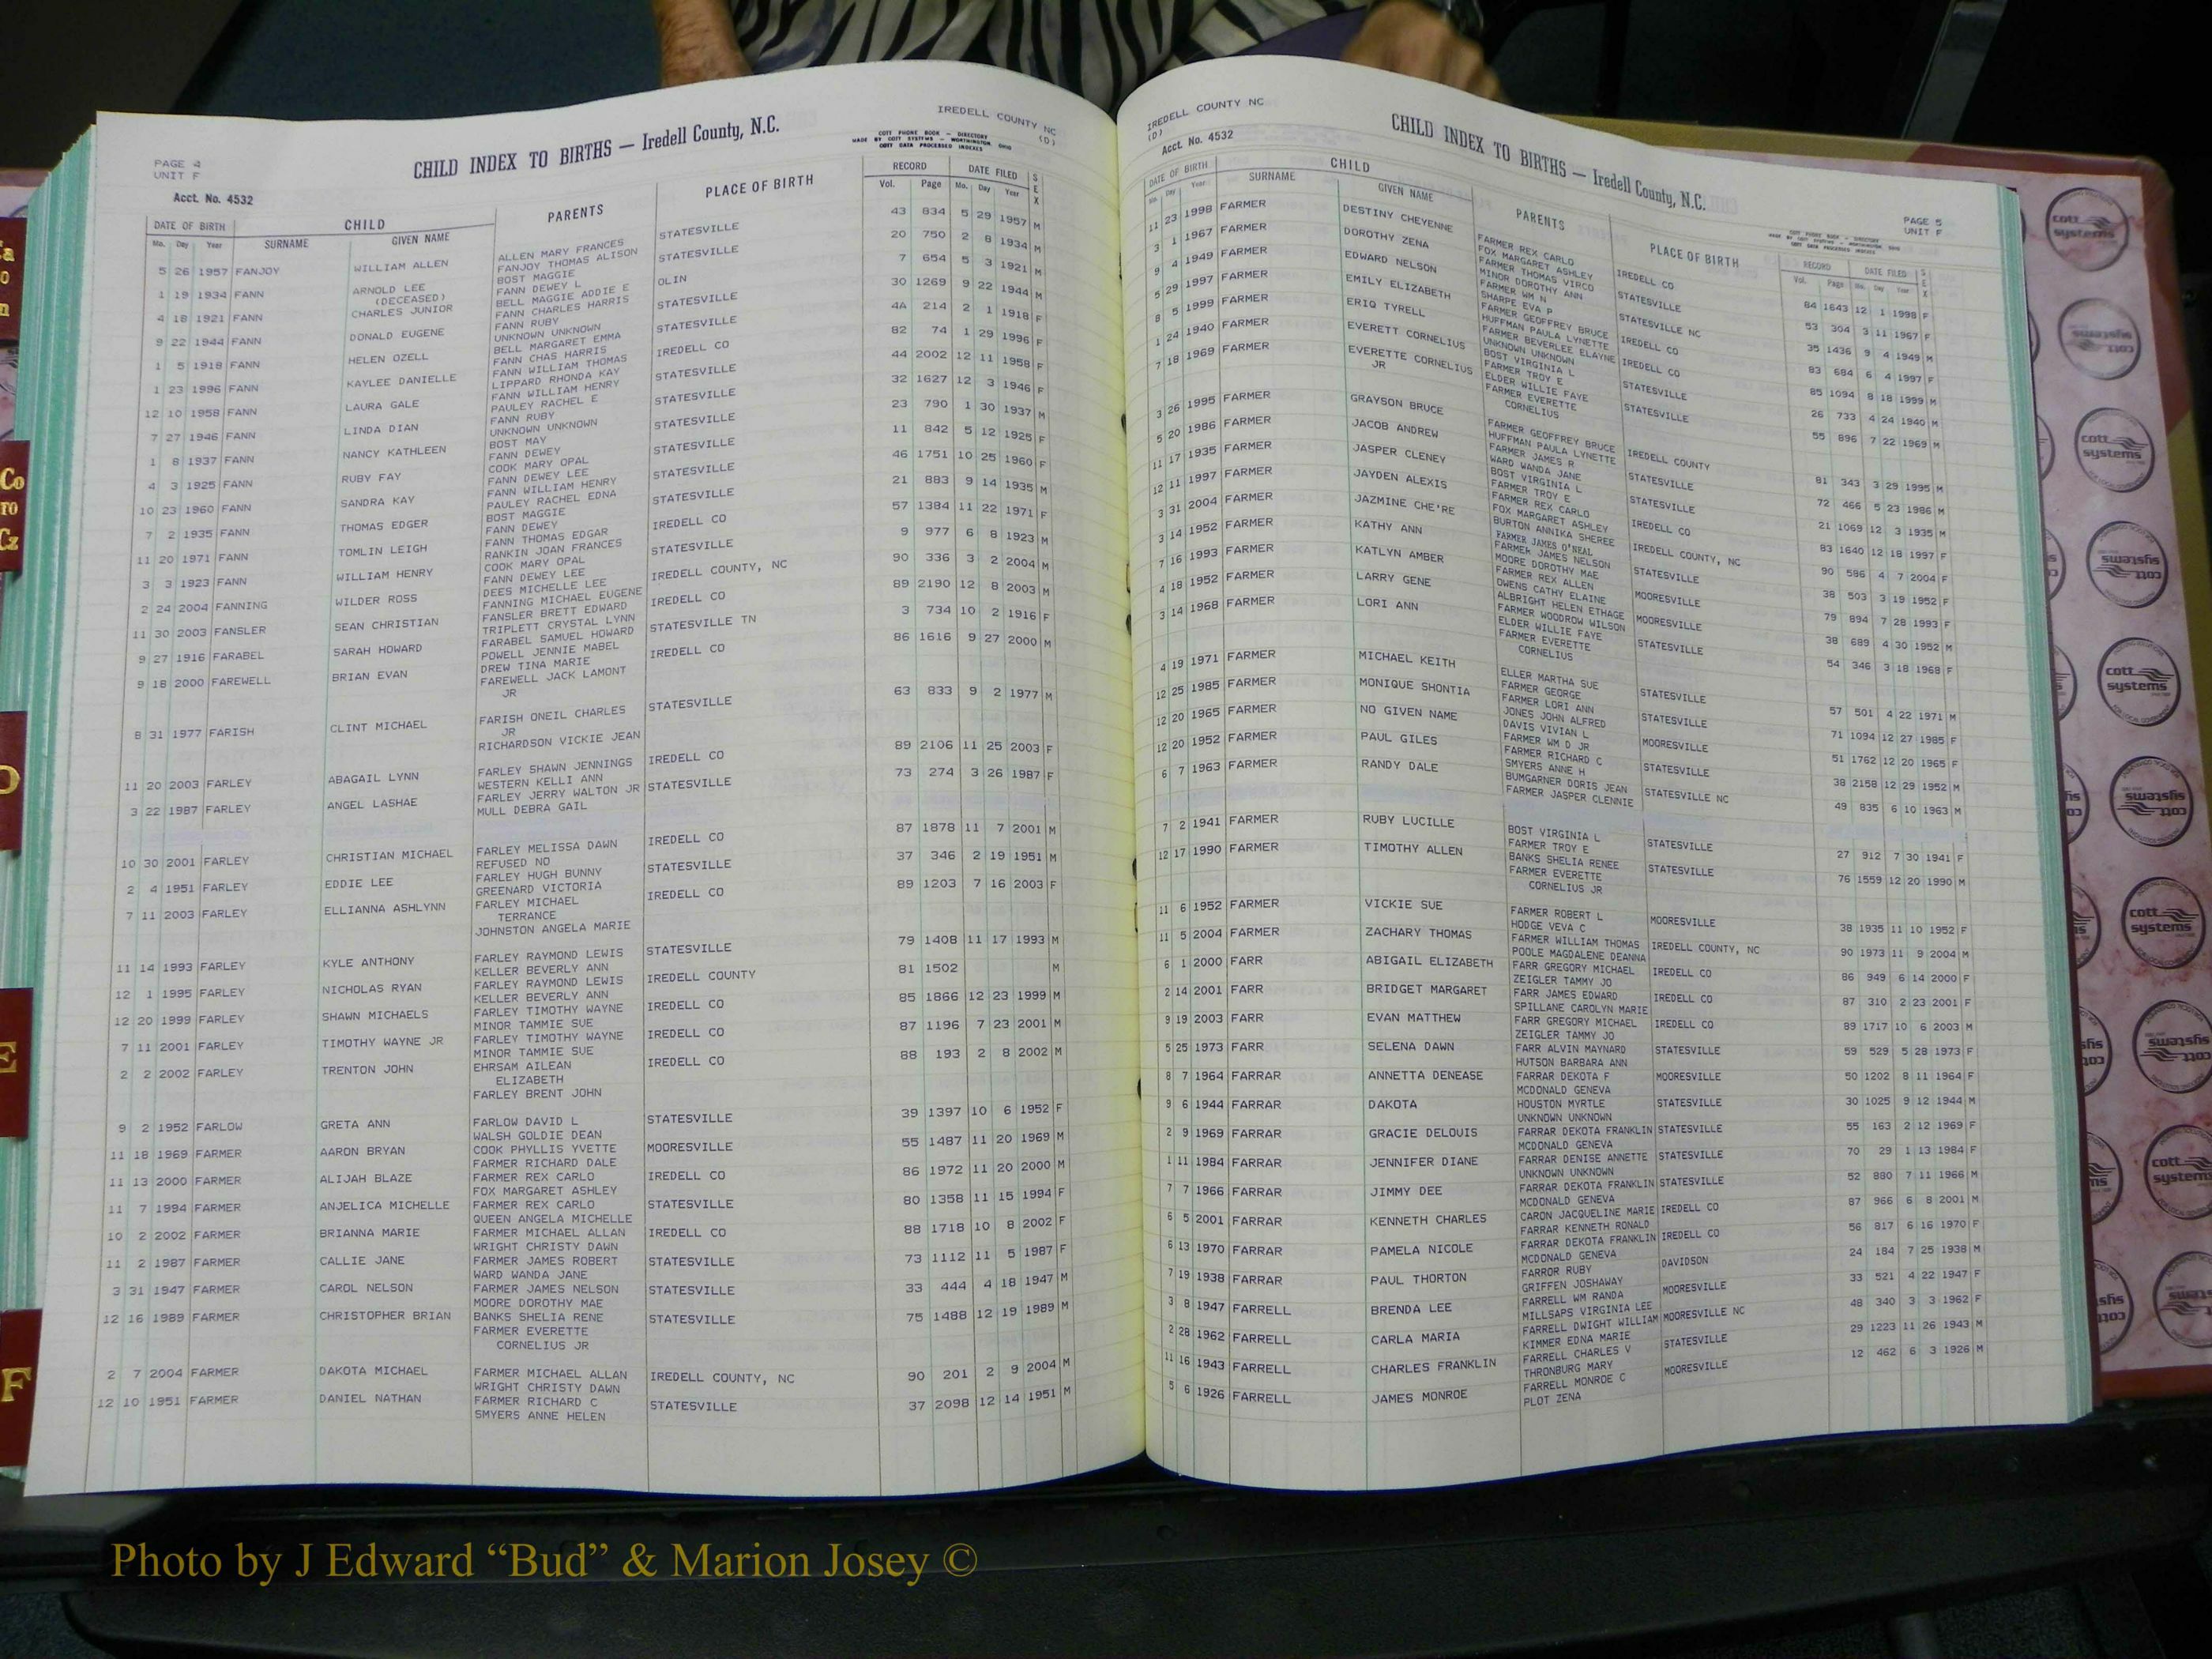 IREDELL COUNTY NC
(D)
COTT PHONE BOOK — DIRECTORY
MADE BY COTT SYSTEMS — WORTHINGTON, OHIO
COTT DATA PROCESSED INDEXES
CHILD INDEX TO BIRTHS — Iredell County, N.C.
PAGE 4
UNIT F
Acct. No. 4532
DATE OF BIRTH CHILD PARENTS PLACE OF BIRTH RECORD DATE FILED SEX
Mo. Day Year SURNAME GIVEN NAME Vol. Page Mo. Day Year
5 26 1957 FANJOY WILLIAM ALLEN ALLEN MARY FRANCES STATESVILLE 43 834 5 29 1957 M
FANJOY THOMAS ALISON
1 19 1934 FANN ARNOLD LEE BOST MAGGIE STATESVILLE 20 750 2 8 1934 M
(DECEASED) FANN DEWEY L
4 18 1921 FANN CHARLES JUNIOR BELL MAGGIE ADDIE E OLIN 7 654 5 3 1921 M
FANN CHARLES HARRIS
9 22 1944 FANN DONALD EUGENE FANN RUBY STATESVILLE 30 1269 9 22 1944 M
UNKNOWN UNKNOWN
1 5 1918 FANN HELEN OZELL BELL MARGARET EMMA STATESVILLE 4A 214 2 1 1918 F
FANN CHAS HARRIS
1 23 1996 FANN KAYLEE DANIELLE FANN WILLIAM THOMAS IREDELL CO 82 74 1 29 1996 F
LIPPARD RHONDA KAY
12 10 1958 FANN LAURA GALE FANN WILLIAM HENRY STATESVILLE 44 2002 12 11 1958 F
PAULEY RACHEL E
7 27 1946 FANN LINDA DIAN FANN RUBY STATESVILLE 32 1627 12 3 1946 F
UNKNOWN UNKNOWN
1 8 1937 FANN NANCY KATHLEEN BOST MAY STATESVILLE 23 790 1 30 1937 M
FANN DEWEY
4 3 1925 FANN RUBY FAY COOK MARY OPAL STATESVILLE 11 842 5 12 1925 F
FANN DEWEY LEE
10 23 1960 FANN SANDRA KAY FANN WILLIAM HENRY STATESVILLE 46 1751 10 25 1960 F
PAULEY RACHEL EDNA
7 2 1935 FANN THOMAS EDGER BOST MAGGIE STATESVILLE 21 883 9 14 1935 M
FANN DEWEY
11 20 1971 FANN TOMLIN LEIGH FANN THOMAS EDGAR IREDELL CO 57 1384 11 22 1971 F
RANKIN JOAN FRANCES
3 3 1923 FANN WILLIAM HENRY COOK MARY OPAL STATESVILLE 9 977 6 8 1923 M
FANN DEWEY LEE
2 24 2004 FANNING WILDER ROSS DEES MICHELLE LEE IREDELL COUNTY, NC 90 336 3 2 2004 M
FANNING MICHAEL EUGENE
11 30 2003 FANSLER SEAN CHRISTIAN FANSLER BRETT EDWARD IREDELL CO 89 2190 12 8 2003 M
TRIPLETT CRYSTAL LYNN
9 27 1916 FARABEL SARAH HOWARD FARABEL SAMUEL HOWARD STATESVILLE TN 3 734 10 2 1916 F
POWELL JENNIE MABEL
9 18 2000 FAREWELL BRIAN EVAN DREW TINA MARIE IREDELL CO 86 1616 9 27 2000 M
FAREWELL JACK LAMONT
JR
8 31 1977 FARISH CLINT MICHAEL FARISH ONEIL CHARLES STATESVILLE 63 833 9 2 1977 M
JR
RICHARDSON VICKIE JEAN
11 20 2003 FARLEY ABAGAIL LYNN FARLEY SHAWN JENNINGS IREDELL CO 89 2106 11 25 2003 F
WESTERN KELLI ANN
3 22 1987 FARLEY ANGEL LASHAE FARLEY JERRY WALTON JR STATESVILLE 73 274 3 26 1987 F
MULL DEBRA GAIL
10 30 2001 FARLEY CHRISTIAN MICHAEL FARLEY MELISSA DAWN IREDELL CO 87 1878 11 7 2001 M
REFUSED NO
2 4 1951 FARLEY EDDIE LEE FARLEY HUGH BUNNY STATESVILLE 37 346 2 19 1951 M
GREENARD VICTORIA
7 11 2003 FARLEY ELLIANNA ASHLYNN FARLEY MICHAEL IREDELL CO 89 1203 7 16 2003 F
TERRANCE
JOHNSTON ANGELA MARIE
11 14 1993 FARLEY KYLE ANTHONY FARLEY RAYMOND LEWIS STATESVILLE 79 1408 11 17 1993 M
KELLER BEVERLY ANN
12 1 1995 FARLEY NICHOLAS RYAN FARLEY RAYMOND LEWIS IREDELL COUNTY 81 1502 M
KELLER BEVERLY ANN
12 20 1999 FARLEY SHAWN MICHAELS FARLEY TIMOTHY WAYNE IREDELL CO 85 1866 12 23 1999 M
MINOR TAMMIE SUE
7 11 2001 FARLEY TIMOTHY WAYNE JR FARLEY TIMOTHY WAYNE IREDELL CO 87 1196 7 23 2001 M
MINOR TAMMIE SUE
2 2 2002 FARLEY TRENTON JOHN EHRSAM AILEAN IREDELL CO 88 193 2 8 2002 M
ELIZABETH
FARLEY BRENT JOHN
9 2 1952 FARLOW GRETA ANN FARLOW DAVID L STATESVILLE 39 1397 10 6 1952 F
WALSH GOLDIE DEAN
11 18 1969 FARMER AARON BRYAN COOK PHYLLIS YVETTE MOORESVILLE 55 1487 11 20 1969 M
FARMER RICHARD DALE
11 13 2000 FARMER ALIJAH BLAZE FARMER REX CARLO IREDELL CO 86 1972 11 20 2000 M
FOX MARGARET ASHLEY
11 7 1994 FARMER ANJELICA MICHELLE FARMER REX CARLO STATESVILLE 80 1358 11 15 1994 F
QUEEN ANGELA MICHELLE
10 2 2002 FARMER BRIANNA MARIE FARMER MICHAEL ALLAN IREDELL CO 88 1718 10 8 2002 F
WRIGHT CHRISTY DAWN
11 2 1987 FARMER CALLIE JANE FARMER JAMES ROBERT STATESVILLE 73 1112 11 5 1987 F
WARD WANDA JANE
3 31 1947 FARMER CAROL NELSON FARMER JAMES NELSON STATESVILLE 33 444 4 18 1947 M
MOORE DOROTHY MAE
12 16 1989 FARMER CHRISTOPHER BRIAN BANKS SHELIA RENE STATESVILLE 75 1488 12 19 1989 M
FARMER EVERETTE
CORNELIUS JR
2 7 2004 FARMER DAKOTA MICHAEL FARMER MICHAEL ALLAN IREDELL COUNTY, NC 90 201 2 9 2004 M
WRIGHT CHRISTY DAWN
12 10 1951 FARMER DANIEL NATHAN FARMER RICHARD C STATESVILLE 37 2098 12 14 1951 M
SMYERS ANNE HELEN
IREDELL COUNTY NC
(D)
Acct. No. 4532
CHILD INDEX TO BIRTHS — Iredell County, N.C.
PAGE 5
UNIT F
COTT PHONE BOOK — DIRECTORY
MADE BY COTT SYSTEMS — WORTHINGTON, OHIO
COTT DATA PROCESSED INDEXES
DATE OF BIRTH CHILD PARENTS PLACE OF BIRTH RECORD DATE FILED SEX
Mo. Day Year SURNAME GIVEN NAME Vol. Page Mo. Day Year
11 23 1998 FARMER DESTINY CHEYENNE FARMER REX CARLO IREDELL CO 84 1643 12 1 1998 F
FOX MARGARET ASHLEY
3 1 1967 FARMER DOROTHY ZENA FARMER THOMAS VIRCO STATESVILLE 53 304 3 11 1967 F
MINOR DOROTHY ANN
9 4 1949 FARMER EDWARD NELSON FARMER WM N STATESVILLE NC 35 1436 9 4 1949 M
SHARPE EVA P
5 29 1997 FARMER EMILY ELIZABETH FARMER GEOFFREY BRUCE IREDELL CO 83 684 6 4 1997 F
HUFFMAN PAULA LYNETTE
8 5 1999 FARMER ERIQ TYRELL FARMER BEVERLEE ELAYNE IREDELL CO 85 1094 8 18 1999 M
UNKNOWN UNKNOWN
1 24 1940 FARMER EVERETT CORNELIUS BOST VIRGINIA L STATESVILLE 26 733 4 24 1940 M
FARMER TROY E
7 18 1969 FARMER EVERETTE CORNELIUS ELDER WILLIE FAYE STATESVILLE 55 896 7 22 1969 M
JR FARMER EVERETTE
CORNELIUS
3 26 1995 FARMER GRAYSON BRUCE FARMER GEOFFREY BRUCE IREDELL COUNTY 81 343 3 29 1995 M
HUFFMAN PAULA LYNETTE
5 20 1986 FARMER JACOB ANDREW FARMER JAMES R STATESVILLE 72 466 5 23 1986 M
WARD WANDA JANE
11 17 1935 FARMER JASPER CLENEY BOST VIRGINIA L IREDELL CO 21 1069 12 3 1935 M
FARMER TROY E
12 11 1997 FARMER JAYDEN ALEXIS FARMER REX CARLO IREDELL COUNTY, NC 83 1640 12 18 1997 F
FOX MARGARET ASHLEY
3 31 2004 FARMER JAZMINE CHE'RE BURTON ANNIKA SHEREE STATESVILLE 90 586 4 7 2004 F
FARMER JAMES O'NEAL
3 14 1952 FARMER KATHY ANN FARMER JAMES NELSON MOORESVILLE 38 503 3 19 1952 F
MOORE DOROTHY MAE
7 16 1993 FARMER KATLYN AMBER FARMER REX ALLEN MOORESVILLE 79 894 7 28 1993 F
OWENS CATHY ELAINE
4 18 1952 FARMER LARRY GENE ALBRIGHT HELEN ETHAGE STATESVILLE 38 689 4 30 1952 M
FARMER WOODROW WILSON
3 14 1968 FARMER LORI ANN ELDER WILLIE FAYE 54 346 3 18 1968 F
FARMER EVERETTE
CORNELIUS
4 19 1971 FARMER MICHAEL KEITH ELLER MARTHA SUE STATESVILLE 57 501 4 22 1971 M
FARMER GEORGE
12 25 1985 FARMER MONIQUE SHONTIA FARMER LORI ANN STATESVILLE 71 1094 12 27 1985 F
JONES JOHN ALFRED
12 20 1965 FARMER NO GIVEN NAME DAVIS VIVIAN L MOORESVILLE 51 1762 12 20 1965 F
FARMER WM D JR
12 20 1952 FARMER PAUL GILES FARMER RICHARD C STATESVILLE 38 2158 12 29 1952 M
SMYERS ANNE H
6 7 1963 FARMER RANDY DALE BUMGARNER DORIS JEAN STATESVILLE NC 49 835 6 10 1963 M
FARMER JASPER CLENNIE
7 2 1941 FARMER RUBY LUCILLE BOST VIRGINIA L STATESVILLE 27 912 7 30 1941 F
FARMER TROY E
12 17 1990 FARMER TIMOTHY ALLEN BANKS SHELIA RENEE STATESVILLE 76 1559 12 20 1990 M
FARMER EVERETTE
CORNELIUS JR
11 6 1952 FARMER VICKIE SUE FARMER ROBERT L MOORESVILLE 38 1935 11 10 1952 F
HODGE VEVA C
11 5 2004 FARMER ZACHARY THOMAS FARMER WILLIAM THOMAS IREDELL COUNTY, NC 90 1973 11 9 2004 M
POOLE MAGDALENE DEANNA
6 1 2000 FARR ABIGAIL ELIZABETH FARR GREGORY MICHAEL IREDELL CO 86 949 6 14 2000 F
ZEIGLER TAMMY JO
2 14 2001 FARR BRIDGET MARGARET FARR JAMES EDWARD IREDELL CO 87 310 2 23 2001 F
SPILLANE CAROLYN MARIE
9 19 2003 FARR EVAN MATTHEW FARR GREGORY MICHAEL IREDELL CO 89 1717 10 6 2003 M
ZEIGLER TAMMY JO
5 25 1973 FARR SELENA DAWN FARR ALVIN MAYNARD STATESVILLE 59 529 5 28 1973 F
HUTSON BARBARA ANN
8 7 1964 FARRAR ANNETTA DENEASE FARRAR DEKOTA F MOORESVILLE 50 1202 8 11 1964 F
MCDONALD GENEVA
9 6 1944 FARRAR DAKOTA HOUSTON MYRTLE STATESVILLE 30 1025 9 12 1944 M
UNKNOWN UNKNOWN
2 9 1969 FARRAR GRACIE DELOUIS FARRAR DEKOTA FRANKLIN STATESVILLE 55 163 2 12 1969 F
MCDONALD GENEVA
1 11 1984 FARRAR JENNIFER DIANE FARRAR DENISE ANNETTE STATESVILLE 70 29 1 13 1984 F
UNKNOWN UNKNOWN
7 7 1966 FARRAR JIMMY DEE FARRAR DEKOTA FRANKLIN STATESVILLE 52 880 7 11 1966 M
MCDONALD GENEVA
6 5 2001 FARRAR KENNETH CHARLES CARON JACQUELINE MARIE IREDELL CO 87 966 6 8 2001 M
FARRAR KENNETH RONALD
6 13 1970 FARRAR PAMELA NICOLE FARRAR DEKOTA FRANKLIN IREDELL CO 56 817 6 16 1970 F
MCDONALD GENEVA
7 19 1938 FARRAR PAUL THORTON FARROR RUBY DAVIDSON 24 184 7 25 1938 M
GRIFFEN JOSHAWAY
3 8 1947 FARRELL BRENDA LEE FARRELL WM RANDA MOORESVILLE 33 521 4 22 1947 F
MILLSAPS VIRGINIA LEE
2 28 1962 FARRELL CARLA MARIA FARRELL DWIGHT WILLIAM MOORESVILLE NC 48 340 3 3 1962 F
KIMMER EDNA MARIE
11 16 1943 FARRELL CHARLES FRANKLIN FARRELL CHARLES V STATESVILLE 29 1223 11 26 1943 M
THRONBURG MARY
5 6 1926 FARRELL JAMES MONROE FARRELL MONROE C MOORESVILLE 12 462 6 3 1926 M
PLOT ZENA
Co
ro
Cz
D
E
F
cott
systems
Photo by J Edward “Bud” & Marion Josey ©